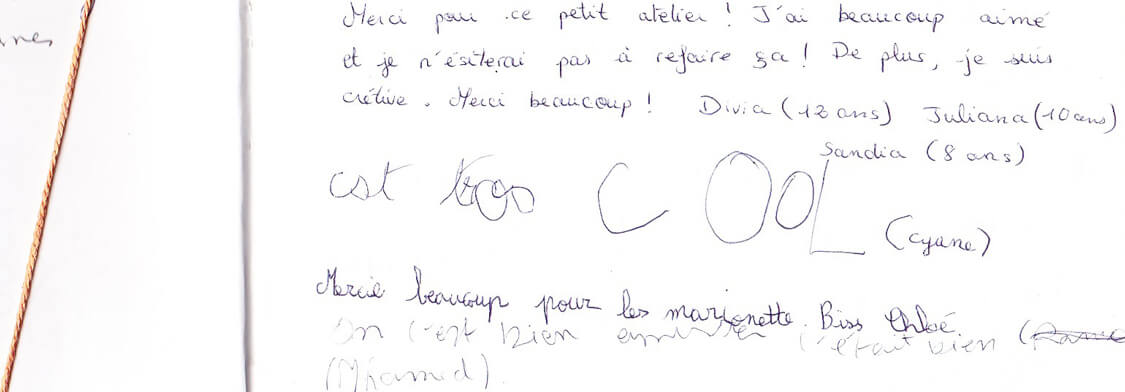 nes
Merci pour ce petit atelier ! J'ai beaucoup aimé
et je n'ésiterai pas à refaire ça ! De plus, je suis
crétive. Merci beaucoup ! Divia (13 ans) Juliana (10 ans)
Sandia (8 ans)
cst trop COOL (cyane)
Mercie beaucoup pour les marionette. Biss Chloé.
On c'est bien amuser c'était bien
(Mhamid)